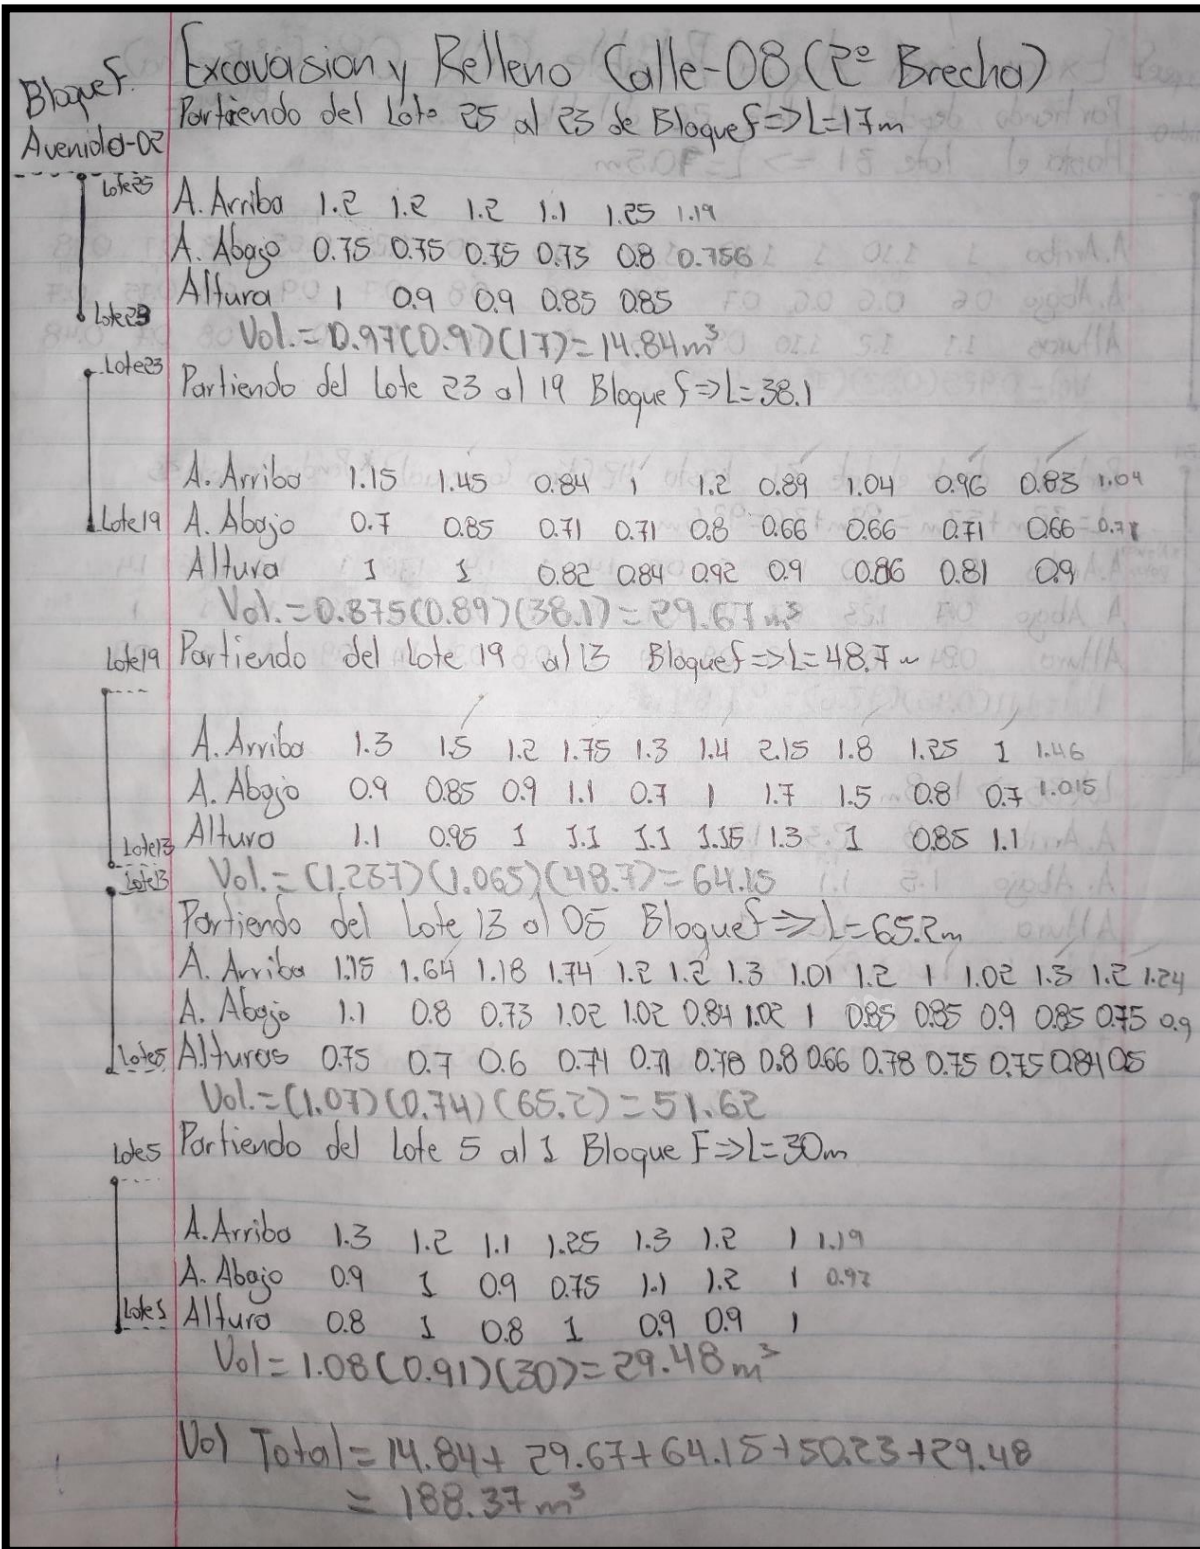 Excavasion y Relleno Calle-08 (2º Brecha)
Bloque f.
Avenida-02
Partiendo del Lote 25 al 23 de Bloque f=>L=17m
Lote25
A. Arriba 1.2 1.2 1.2 1.1 1.25 1.19
A. Abajo 0.75 0.75 0.75 0.73 0.8 0.756
Altura 1 0.9 0.9 0.85 0.85
Lote23
Vol.=0.97(0.9)(17)=14.84m³
Lote23
Partiendo del Lote 23 al 19 Bloque f=>L=38.1
A. Arriba 1.15 1.45 0.84 1 1.2 0.89 1.04 0.96 0.83 1.04
Lote19
A. Abajo 0.7 0.85 0.71 0.71 0.8 0.66 0.66 0.71 0.66 0.71
Altura 1 1 0.82 0.84 0.92 0.9 0.86 0.81 0.9
Vol.=0.875(0.89)(38.1)=29.67m³
Lote19
Partiendo del Lote 19 al 13 Bloque f=>L=48.7m
A. Arriba 1.3 1.5 1.2 1.75 1.3 1.4 2.15 1.8 1.25 1 1.46
A. Abajo 0.9 0.85 0.9 1.1 0.7 1 1.7 1.5 0.8 0.7 1.015
Lote13
Altura 1.1 0.95 1 1.1 1.1 1.15 1.3 1 0.85 1.1
Lote13
Vol.=(1.237)(1.065)(48.7)=64.15
Partiendo del Lote 13 al 05 Bloque f=>L=65.2m
A. Arriba 1.15 1.64 1.18 1.74 1.2 1.2 1.3 1.01 1.2 1 1.02 1.3 1.2 1.24
A. Abajo 1.1 0.8 0.73 1.02 1.02 0.84 1.02 1 0.85 0.85 0.9 0.85 0.75 0.9
Lote5
Alturas 0.75 0.7 0.6 0.74 0.71 0.78 0.8 0.66 0.78 0.75 0.75 0.84 0.5
Vol.=(1.07)(0.74)(65.2)=51.62
Lote5
Partiendo del Lote 5 al 1 Bloque F=>L=30m
A. Arriba 1.3 1.2 1.1 1.25 1.3 1.2 1 1.19
A. Abajo 0.9 1 0.9 0.75 1.1 1.2 1 0.97
Lote1
Altura 0.8 1 0.8 1 0.9 0.9 1
Vol=1.08(0.91)(30)=29.48m³
Vol Total=14.84+29.67+64.15+50.23+29.48
=188.37m³